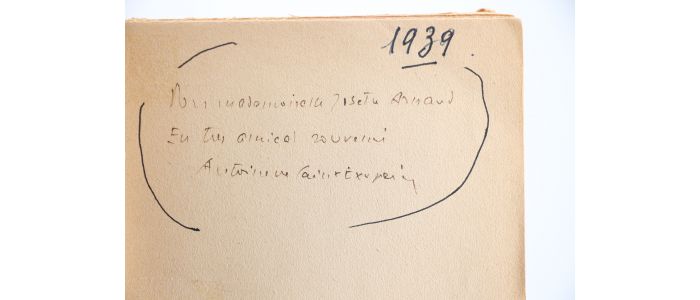 1939
Pour mademoiselle Josette Arnaud
En très amical souvenir
Antoine de Saint Exupéry